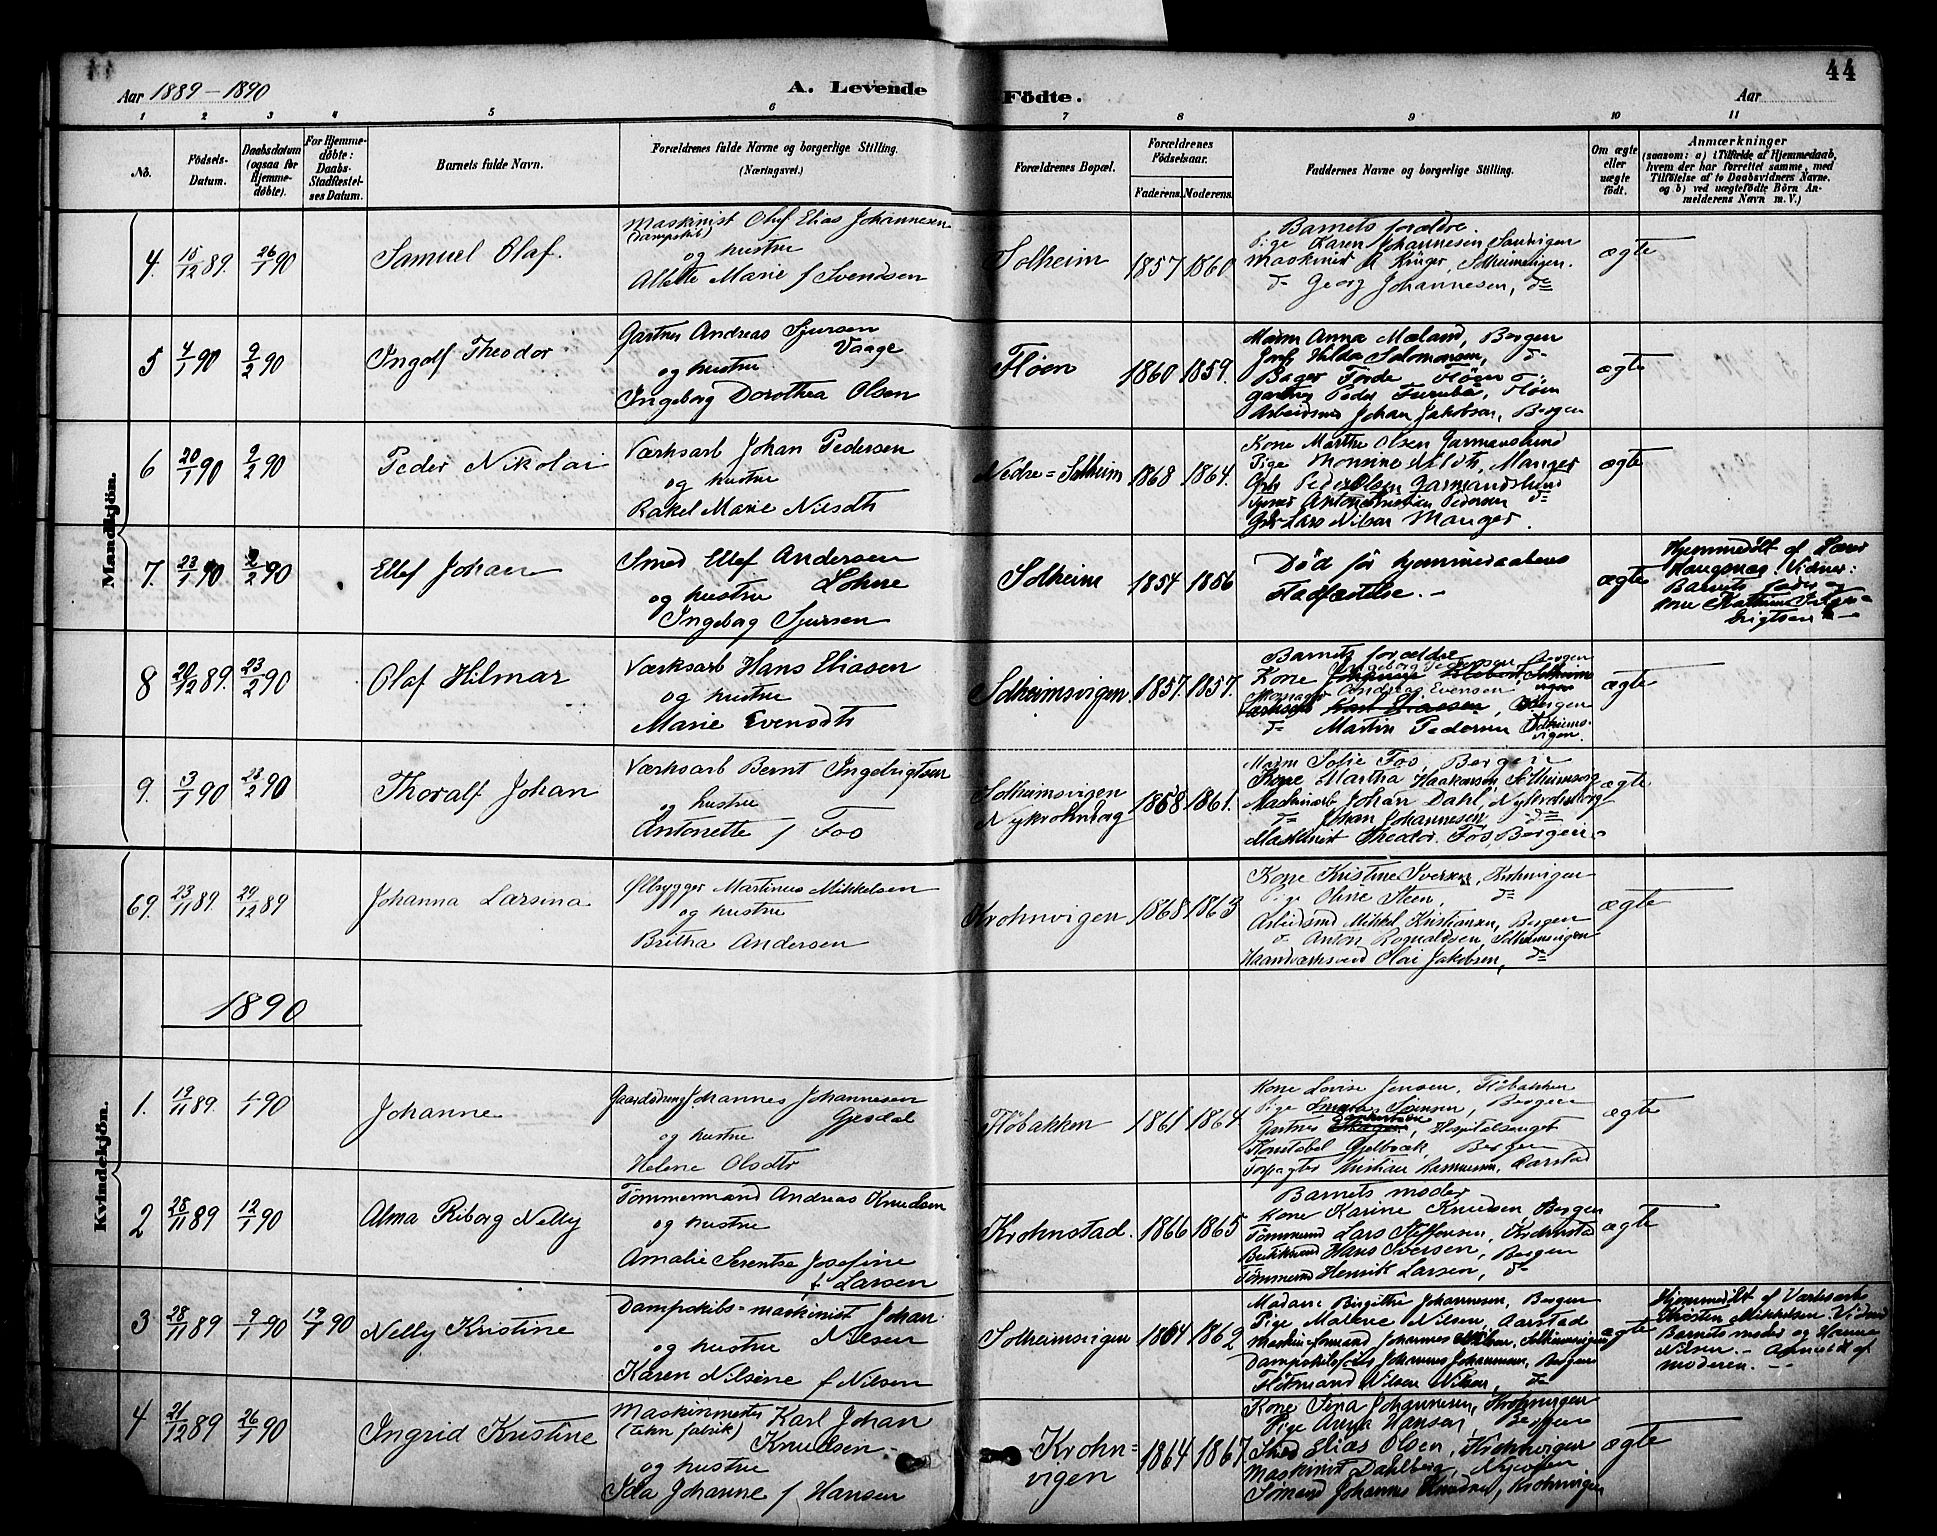 44
Aar 1889-1890
A. Levende Födte.
Aar
1 2 3 4 5 6 7 8 9 10 11
No.
Födsels-Datum.
Daabsdatum (ogsaa for Hjemmedöbte).
For Hjemmedöbte: Daabs-Stadfæstelses Datum.
Barnets fulde Navn.
Forældrenes fulde Navne og borgerlige Stilling. (Næringsvei.)
Forældrenes Bopæl.
Forældrenes Födselsaar.
Faderens. Moderens.
Faddernes Navne og borgerlige Stilling.
Om ægte eller uægte födt.
Anmærkninger
(saasom: a) i Tilfælde af Hjemmedaab, hvem der har forrettet samme, med Tilföielse af to Daabsvidners Navne, og b) ved uægtefödte Börn Anmelderens Navn m. V.)
Mandkjön.
4. 15/12 89. 26/1 90
Samuel Olaf.
Maskinist Oluf Elias Johannesen
(Dampskib)
og hustru
Alette Marie f Svendsen
Solheim
1857 1860
Barnets forældre.
Pige Karen Johannesen Sandvigen
Maskinist A Krüger, Solheimsvigen.
do Georg Johannesen, do
ægte
5 4/1 90 9/2 90
Ingolf Theodor
Gartner Andreas Sjursen
Vaage
og hustru
Ingeborg Dorothea Olsen
Fløen
1860 1859.
Madm Anna Mæland, Bergen
Jomf Hilda Salomonsen, do
Bager Førde Fløen
Gartner Peder Fløen
Arbeidsmd Johan Jakobsen, Bergen
ægte
6 20/1 90 9/2 90
Peder Nikolai
Værksarb Johan Pedersen
og hustru
Rakel Marie Nilsdtr
Nedre=Solheim
1868 1864.
Kone Marthe Olsen Garmannslund
Pige Monsine Nilsdtr, Manger
Peder Olsen Garmandslund
Anton Kristian Pedersen do
Lars Nilsen Manger.
ægte
7. 23/1 90 2/2 90
Ellef Johan
Smed Ellef Andersen
Lohne
og hustru
Ingeborg Sjursen
Solheim
1854 1856
Død før hjemmedaabens
stadfæstelse.
ægte
Hjemmedøbt af Lærer
Haugsnæs Vidner:
Barnets fader og
8 20/12 89. 23/2 90
Olaf Hilmar
Værksarb Hans Eliasen
og hustru
Marie Evensdtr
Solheimsvigen
1857. 1857.
Barnets forældre
Kone Ingeborg Pedersen Bergen
Skomager Andreas Evensen, Bergen
do Martin Pedersen Solheimsvigen.
ægte
9. 3/1 90 23/2 90
Thoralf Johan
Værksarb Bernt Ingebrigtsen
og hustru
Antonette f Fos
Solheimsvigen
Nykrohnborg
1868 1861.
Madm Sofie Fos, Bergen
Kone Martha Haakonsen, Solheimsvig
Maskinarb Johan Dahl, Nykrohnborg
do Johan Johannesen, do
Maskinist Theodor Fos, Bergen
ægte
Kvindekjön.
69. 23/11 89. 29/12 89
Johanna Larsina
Ølbrygger Martinus Mikkelsen
og hustru
Britha Andersen
Krohnvigen
1868 1863
Kone Kristine Iversen, Krohnvigen
Pige Oline Steen, do
Arbeidsmd Mikkel Kristiansen, Bergen
do Anton Rognaldsen, Solheimsvigen
Haandværkssvend Olai Jakobsen, do
ægte
1890
1. 19/11 89. 1/1 90
Johanne
Gaardsdreng Johannes Johannesen
Gjesdal
og hustru
Helene Olsdtr
Fløbakken
1861 1864
Kone Lovise Jensen, Fløbakken
Pige Emma Sømsen, Bergen
Gartner Hospitalsenget
Konstabel Gjelbræk Bergen
Forpagter Kristian Rasmussen, Aarstad
ægte
2 28/11 89 12/1 90
Alma Riborg Nelly
Tømmermand Andreas Knudsen
og hustru
Amalie Serentse Josefine
f Larsen
Krohnstad.
1866 1865
Barnets moder
Kone Karine Knudsen Bergen
Tømmermd Lars Steffensen, Krohnstad
Hans Iversen, Bergen
Tømmermd Henrik Larsen, do
ægte
3 28/11 89 9/1 90 19/1 90
Nelly Kristine
Dampskibs=maskinist Johan
Nilsen
og hustru
Karen Nilsine f Nilsen
Solheimsvigen
1864 1862
Madam Birgitte Johannesen, Bergen
Pige Malene Nilsen, Aarstad
Johannes Nilsen, Solheimsvigen
Johannes Johannesen, Bergen
Nilsen Nilsen, do
ægte
Hjemmedøbt af Værksarb
Thorsten Mikkelsen. Vidner
Barnets moder og Hanna
Nilsen. Anmeldt af
moderen.
4 21/12 89 26/1 90
Ingrid Kristine
Maskinmester Karl Johan
(tehn fabrik) Knudsen
og hustru
Ida Johanne f Hansen
Krohn=
vigen
1864 1867
Kone Sina Johannesen, Krohnvigen
Pige Anna Hansen, Bergen
Smed Elias Olsen, Krohnvigen
Maskinist Dahlberg,
Sømand Johannes Knudsen, Krohnvigen
ægte